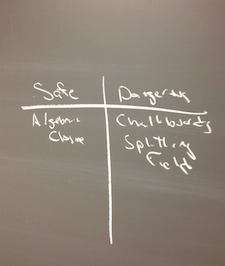 Safe
Dangerous
Algebraic
Closure
Chalkboards
Splitting
Fields